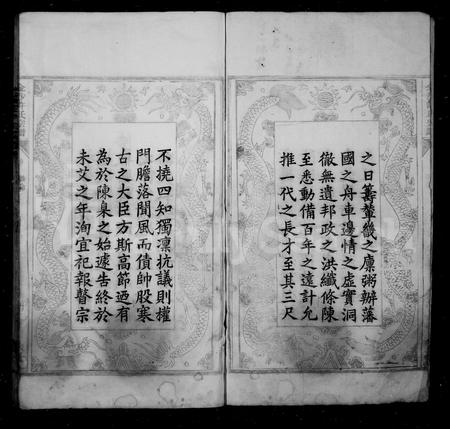 之日籌輦畿之麋粥辦藩
國之舟車邊情之虛實洞
徹無遺邦政之洪纖條陳
至悉動備百年之遠計允
推一代之長才至其三尺
不撓四知獨凜抗議則權
門膽落聞風而債帥股寒
古之大臣方斯高節迺有
為於陳臬之始遽告終於
未艾之年洵宜祀報瞽宗